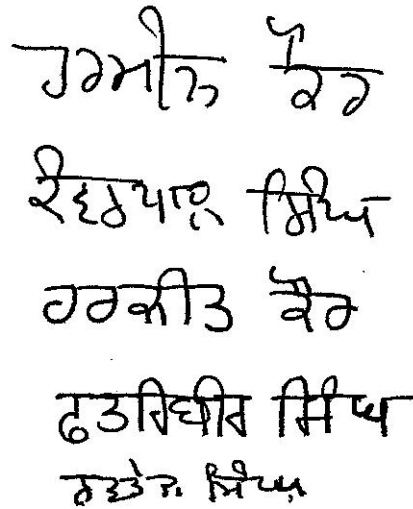 ਹਰਮੀਨ ਕੌਰ
ਕੰਵਰਪਾਲ ਸਿੰਘ
ਹਰਕੀਤ ਕੌਰ
ਫਤਹਿਬੀਰ ਸਿੰਘ
ਨਵਤੇਜ ਸਿੰਘ